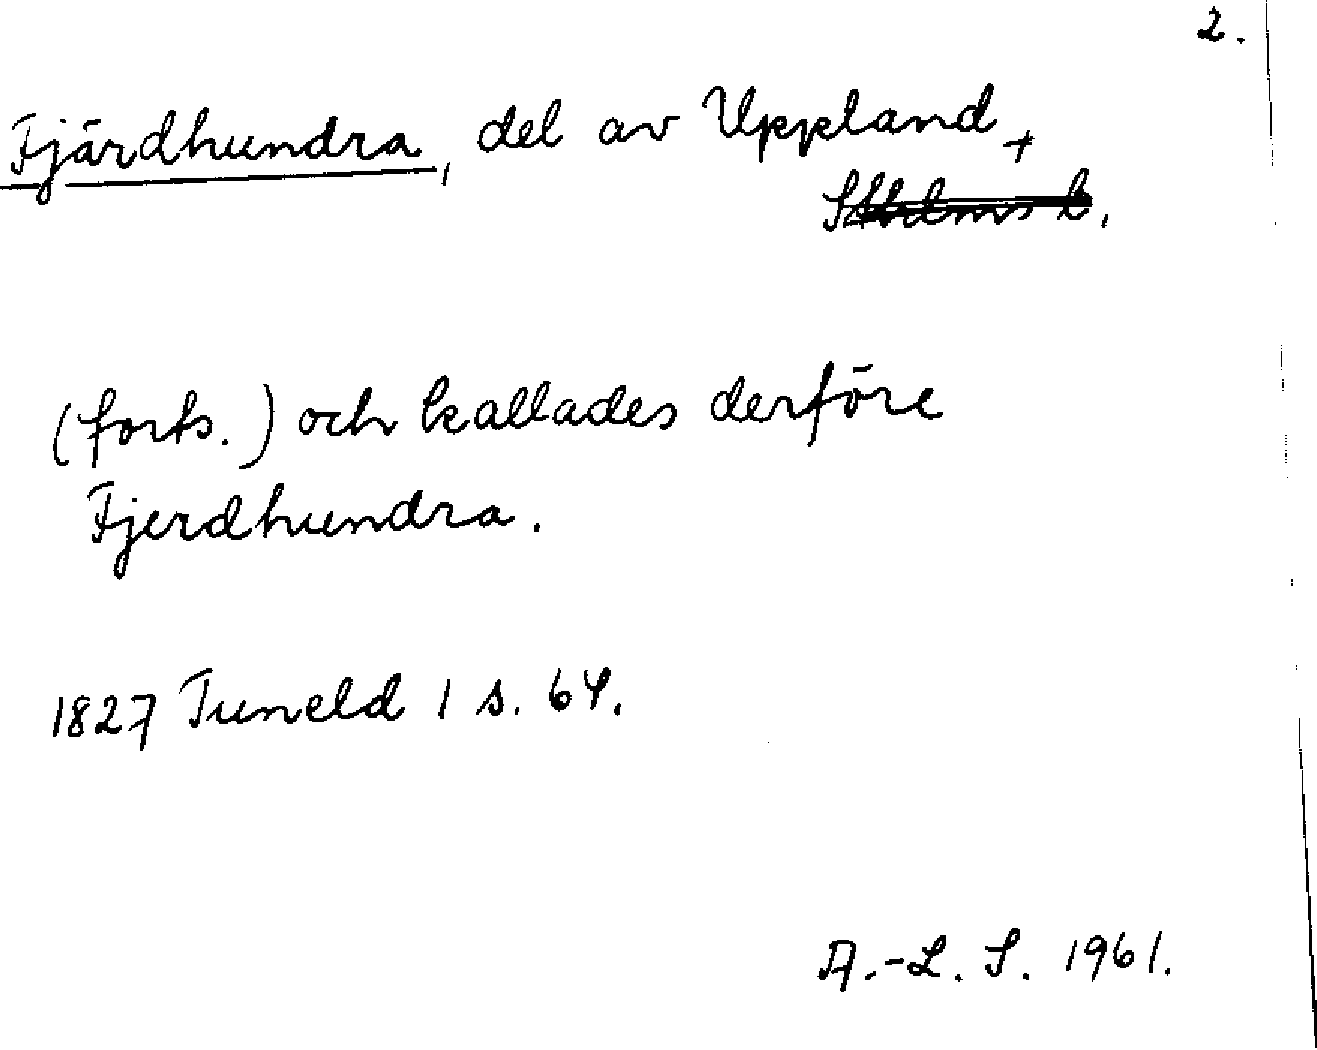 2.
Fjärdhundra, del av Uppland, +
Sthlms l.
(forts.) och kallades derföre
Fjerdhundra.
1827 Tuneld 1 s. 64.
A.-L. S. 1961.